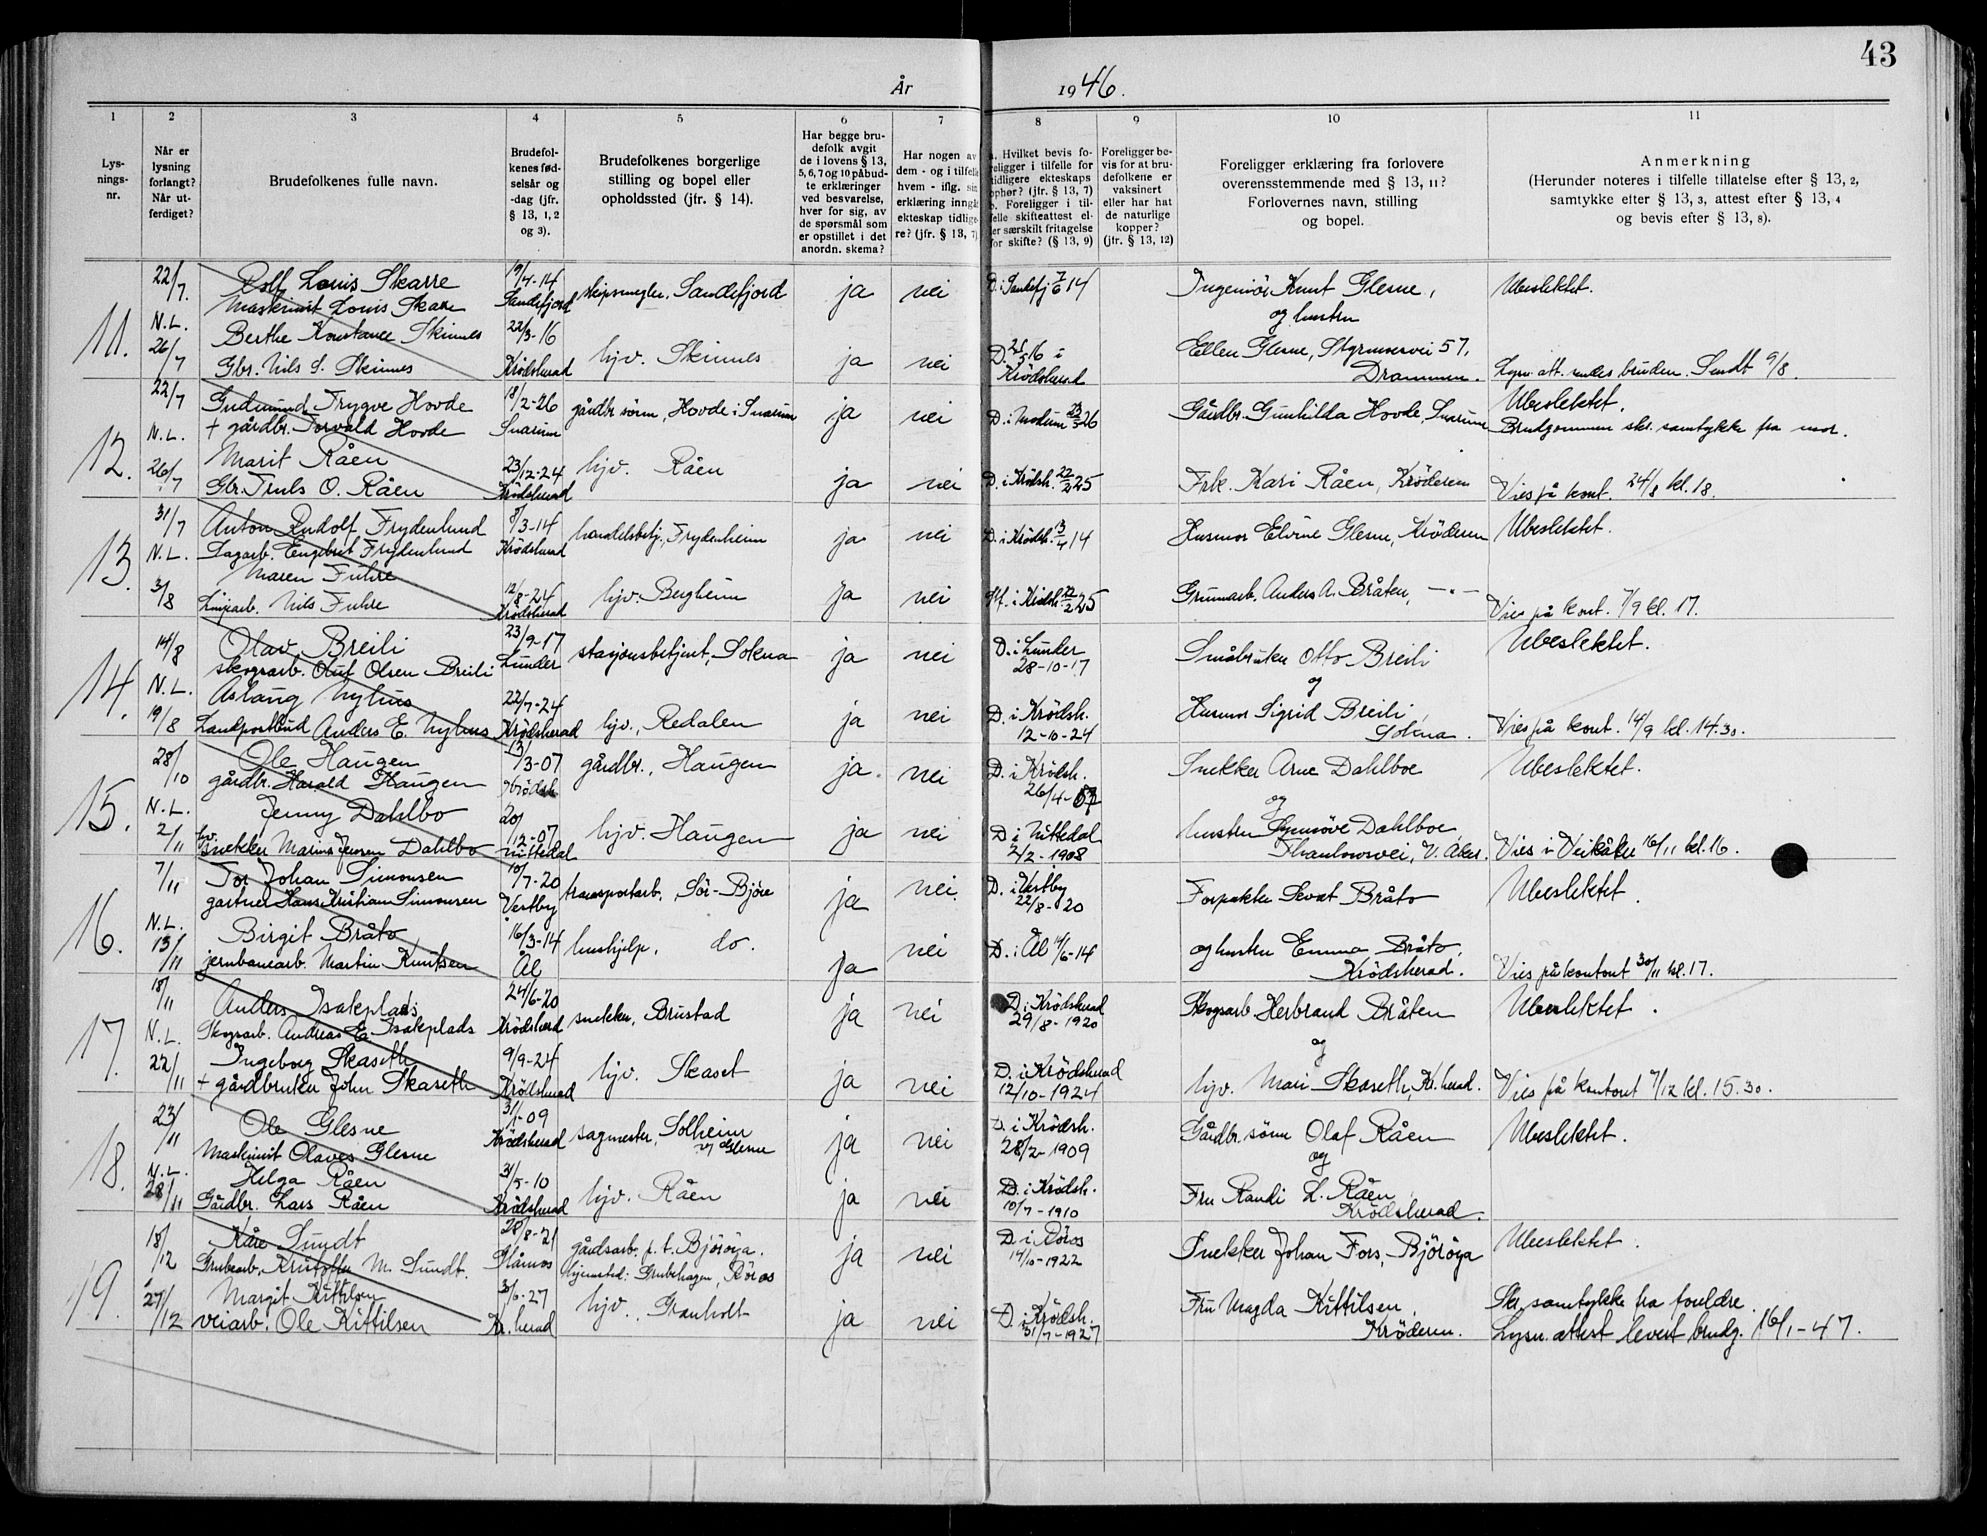 43
År 1946.
1 2 3 4 5 6 7 8 9 10 11
Lysnings-nr.
Når er lysning forlangt? Når utferdiget?
Brudefolkenes fulle navn.
Brudefolkenes fødselsår og -dag (jfr. § 13, 1, 2 og 3).
Brudefolkenes borgerlige stilling og bopel eller opholdssted (jfr. § 14).
Har begge brudefolk avgit de i lovens § 13, 5, 6, 7 og 10 påbudte erklæringer ved besvarelse, hver for sig, av de spørsmål som er opstillet i det anordn. skema?
Har nogen av dem - og i tilfelle hvem - iflg. sin erklæring inngått ekteskap tidligere? (jfr. § 13, 7)
a. Hvilket bevis foreligger i tilfelle for tidligere ekteskaps ophør? (jfr. § 13, 7) b. Foreligger i tilfelle skifteattest eller særskilt fritagelse for skifte? (§ 13, 9)
Foreligger bevis for at brudefolkene er vaksinert eller har hat de naturlige kopper? (jfr. § 13, 12)
Foreligger erklæring fra forlovere overensstemmende med § 13, 11? Forlovernes navn, stilling og bopel.
Anmerkning (Herunder noteres i tilfelle tillatelse efter § 13, 2, samtykke efter § 13, 3, attest efter § 13, 4 og bevis efter § 13, 8).
11. 22/7 Rolf Louis Skarre 19/4-14 skipsmegler, Sandefjord ja nei D. i Sandefj 7/6 14 Ingeniör Knut Glesne, Ubeslektet.
Maskinist Louis Skarre Sandefjord og hustru
N.L. Berthe Konstance Skinnes 22/3-16
26/7 Gbr. Nils S. Skinnes Krödsherad hjv. Skinnes ja nei D. 21/5 16 i Krödsherad Ellen Glesne, Styrmoesvei 57, Drammen. Lysn. att. sendes bruden. Sendt 9/8.
12. 22/7 Gudmund Trygve Hovde 18/2-26 gårdbr. sönn, Hovde i Snarum ja nei D. i Modum 26 Gårdbr. Gunhilda Hovde, Snarum Ubeslektet.
N.L. + gårdbr. Torvald Hovde Snarum Brudgommen skr. samtykke fra mor.
Marit Råen 23/12-24 hjv. Råen
26/7 Gbr. Truls O. Råen Krödsherad ja nei D. i Krödsh. 22/2 25 Frk. Kari Råen, Kröderen Vies på kont. 24/8 kl. 18.
13. 31/7 Anton Rudolf Frydenlund 8/3-14 handelsbetj., Frydenheim ja nei D. i Krödsh. 13/4 14 Husmor Elvine Glesne, Kröderen Ubeslektet.
N.L. Sagarb. Engebret Frydenlund Krödsherad
Maren Fuhre
3/8 Linjearb. Nils Fuhre 12/8-24 Krödsherad hjv. Bergheim ja nei Hf. i Krödsh. 22/2 25 Grunnarb. Anders A. Bråten, -"- Vies på kont. 7/9 kl. 17.
14. 14/8 Olav Breili 23/9-17 stasjonsbetjent, Sokna ja nei D. i Lunder 28-10-17 Småbruker Otto Breili Ubeslektet.
skogsarb. Oluf Olsen Breili Lunder og
N.L. Aslaug Nyhus 22/7-24
19/8 Landpostbud Anders E. Nyhus Krödsherad hjv. Redalen ja nei D. i Krödsh. 12-10-24 Husmor Sigrid Breili Sokna. Vies på kont. 14/9 kl. 14.30.
15. 28/10 Ole Haugen 13/3-07 gårdbr., Haugen ja. nei D. i Krödsh. 26/4-07 Snekker Arne Dahlboe Ubeslektet.
gårdbr. Harald Haugen Krödsh. og
N.L. Jenny Dahlbo 20/12-07
2/11 snekker Marius Jensen Dahlbo Nittedal hjv. Haugen ja nei D. i Nittedal 2/2-1908 hustru Synnöve Dahlboe, Thaulowsvei, V. Aker. Vies i Veikåker 16/11 kl. 16.
16. 7/11 Tor Johan Simonsen 10/7-20 transportarb., Sör-Björe ja nei. D. i Vestby 22/8-20 Forpakter Sevat Bråto Ubeslektet.
gartner Hans Kristian Simonsen Vestby
N.L. Birgit Bråto 16/3-14 hushjelp, do. nei D. i Ål 14/6-14 og hustru Emma Bråto,
13/11 jernbanearb. Martin Knutsen Ål ja Krödsherad. Vies på kontoret 30/11 kl. 17.
17. 18/11 Anders Isakplads 24/6-20 snekker, Brustad ja nei D. i Krödsherad 29/8-1920 Skogsarb Herbrand Bråten Ubeslektet.
N.L. Skogsarb. Andreas E. Isakplads Krödsherad og
Ingeborg Skaseth 9/9-24
22/11 + gårdbruker John Skaseth Krödsherad hjv. Skaset ja nei D. i Krödsherad 12/10-1924 hjv. Mari Skaseth, Kr. herad. Vies på kontoret 7/12 kl. 15.30.
18. 23/11 Ole Glesne 31/1-09 sagmester, Solheim v/ Glesne ja nei D. i Krödsh. 28/2-1909 Gårdbr. sönn Olaf Råen Ubeslektet.
Maskinist Olaves Glesne Krödsherad og
N.L. Helga Råen 31/5-10
28/11 Gårdbr. Lars Råen Krödsherad hjv. Råen ja nei D. i Krödsh. 10/7-1910 Fru Randi L. Råen Krödsherad.
19. 18/12 Kåre Sundt 20/8-21 gårdsarb. p.t. Björöya. ja nei D. i Röros 14/10-1922 Snekker Johan Fors, Björöya Ubeslektet.
Grubearb. Kristoffer M. Sundt. Glåmos hjemsted: Grubehagen, Röros
Margit Kittilsen 3/6-27 Skr. samtykke fra foreldre.
27/12 veiarb. Ole Kittilsen Kr. herad hjv. Granholt ja nei D. i Krödsh. 31/7-1927 Fru Magda Kittilsen, Kröderen. Lysn. attest levert brudg. 16/1-47.